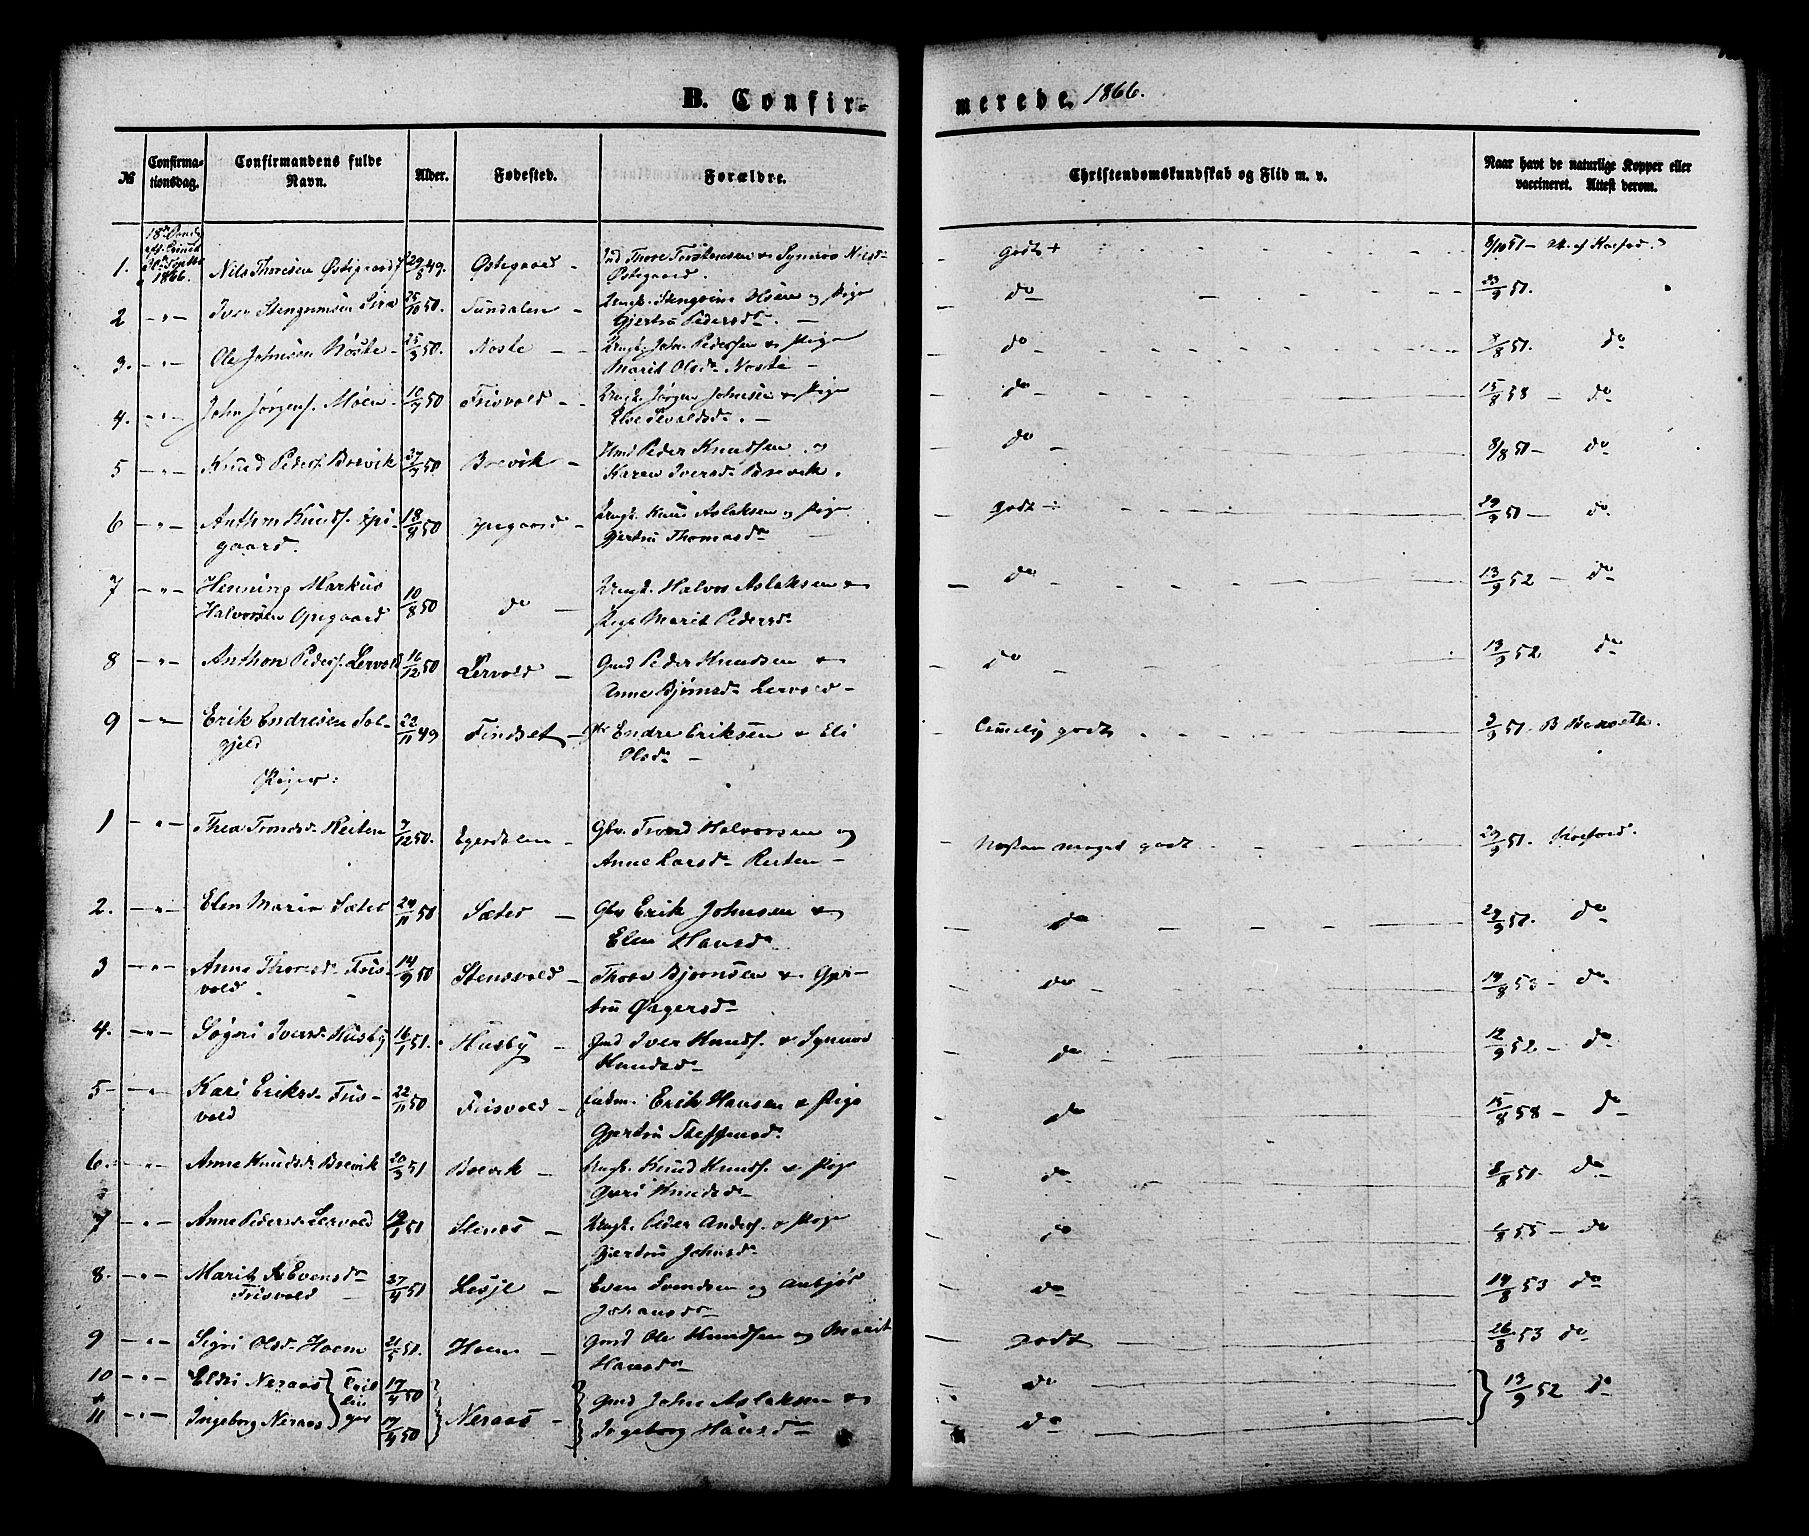 B. Confir-
merede. 1866.
№
Confirma-
tionsdag.
Confirmandens fulde
Navn.
Alder.
Fødested.
Forældre.
Christendomskundskab og Flid m. v.
Naar havt de naturlige Kopper eller
vaccineret. Attest derom.
1866.
1. Nils Thoresen Østigaard 29/8 49. Østegaard - Thore Torstensen & Synnøv Nilsd-
Østegaard.
godt + 8/10 51 -
2 - " - Iver 25/10 50. Sundalen - og Pige
Gjertru Pedersdr. -
do 23/9 51.
3. - " - Ole Johnsen Nøste - 25/3 50. Nøste - John Pedersen & Pige
Marit Olsdr Nøste -
do 8/8 51. do
4. - " - John Jørgens. Moen - 16/7 50 Frisvold - Jørgen Johnsen & Pige
Sevaldsd. -
do 15/8 58 - do
5 - " - Knud Peders. Brevik 27/7 50 Brevik - Peder Knudsen og
Karen Iversd. Brevik.
do 8/8 51 - do
6 - " - Anthon Knuds. Opi-
gaard. 18/8 50 Opegaard - Knud Aslaksen og Pige
Gjertru Thomasdr
godt 29/9 51 - do
7 - " - Henning Markus
Halvorsen Opigaard 10/8 50 do - Halvor Aslaksen &
Pige Marit Pedersdr
do 13/9 52 - do
8 - " - Anthon Peders. Lervold 16/12 50 Lervold - Gmd Peder Knudsen &
Anne Bjørnsdr Lervold -
do 13/9 52 do
9 - " - Erik Endresen Sol-
gjeld 22/11 49 Findset - Endre Eriksen & Eli
Olsdr -
Temelig godt 3/9 51.
Piger:
1 - " - Thea Trondsdr Reiten 7/12 50. Egerdalen Gbr. Trond Halvorsen og
Anne Larsdr Reiten -
Næsten meget godt 29/9 51. Kosfod.
2. - " - Elen Maria Sæter 24/11 50 Sæter - Gbr Erik Johnsen &
Elen Hansdr
do 29/9 51. do
3 - " - Anne Thoresdr Fris-
vold 14/9 50 Stensvold - Thore Bjørnsen & Gjer-
tru
do 14/8 53 - do
4. - " - Iversdr Husby 16/1 51. Husby - Gmd Iver Knuds. & Synnøv
Knudsdr
do 12/9 52 - do
5 - " - Kari Eriksdr Fris-
vold 22/11 50 Frisvold - Erik Hansen & Pige
Gjertru Steffensdr.
do 15/8 58 - do
6. - " - Anne Knudsdr Brevik 20/3 51 Brevik - Knud Knuds. & Pige
Guri Knudsdr
do 8/8 51. do
7 - " - Anne Pedersdr Lervold 51 - Peder Anders. & Pige
Gjertru Johnsdr
do 55 - do
8. - " - Marit Evensdr
Frisvold 27/4 51 Lesje - Even Svendsen og Anbjør
Johansdr
do 14/8 53 do
9 - " - Sigri Olsdr Hoem 21/5 51. Hoem - Gmd Ole Knudsen og Marit
Hansdr
godt 26/8 53 do
10 - " - Eldri Neraas 17/4 50
do
11 - " - Ingeborg Neraas 17/4 50 Neraas - Gmd John Aslaksen &
Ingeborg Hansdr
do 13/9 52 do